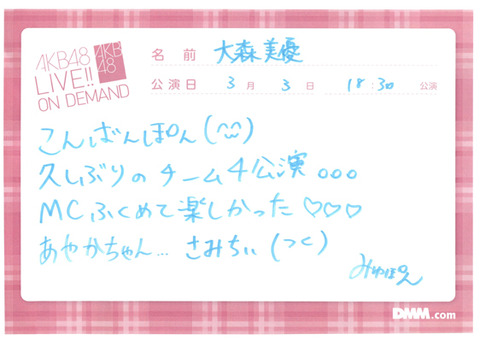 AKB48
LIVE!!
ON DEMAND
AKB
48
名前 大森美優
公演日 3月3日 18:30 公演
こんばんぽん(^^)
久しぶりのチーム4公演。。。
MCふくめて楽しかった♡♡♡
あやかちゃん… さみちぃ(つ<)
みゆぽん
DMM.com